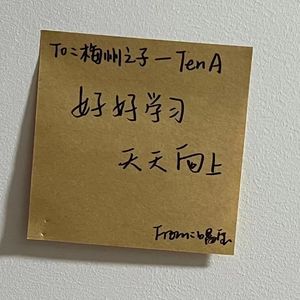 To：梅州之子—TenA
好好学习
天天向上
From：